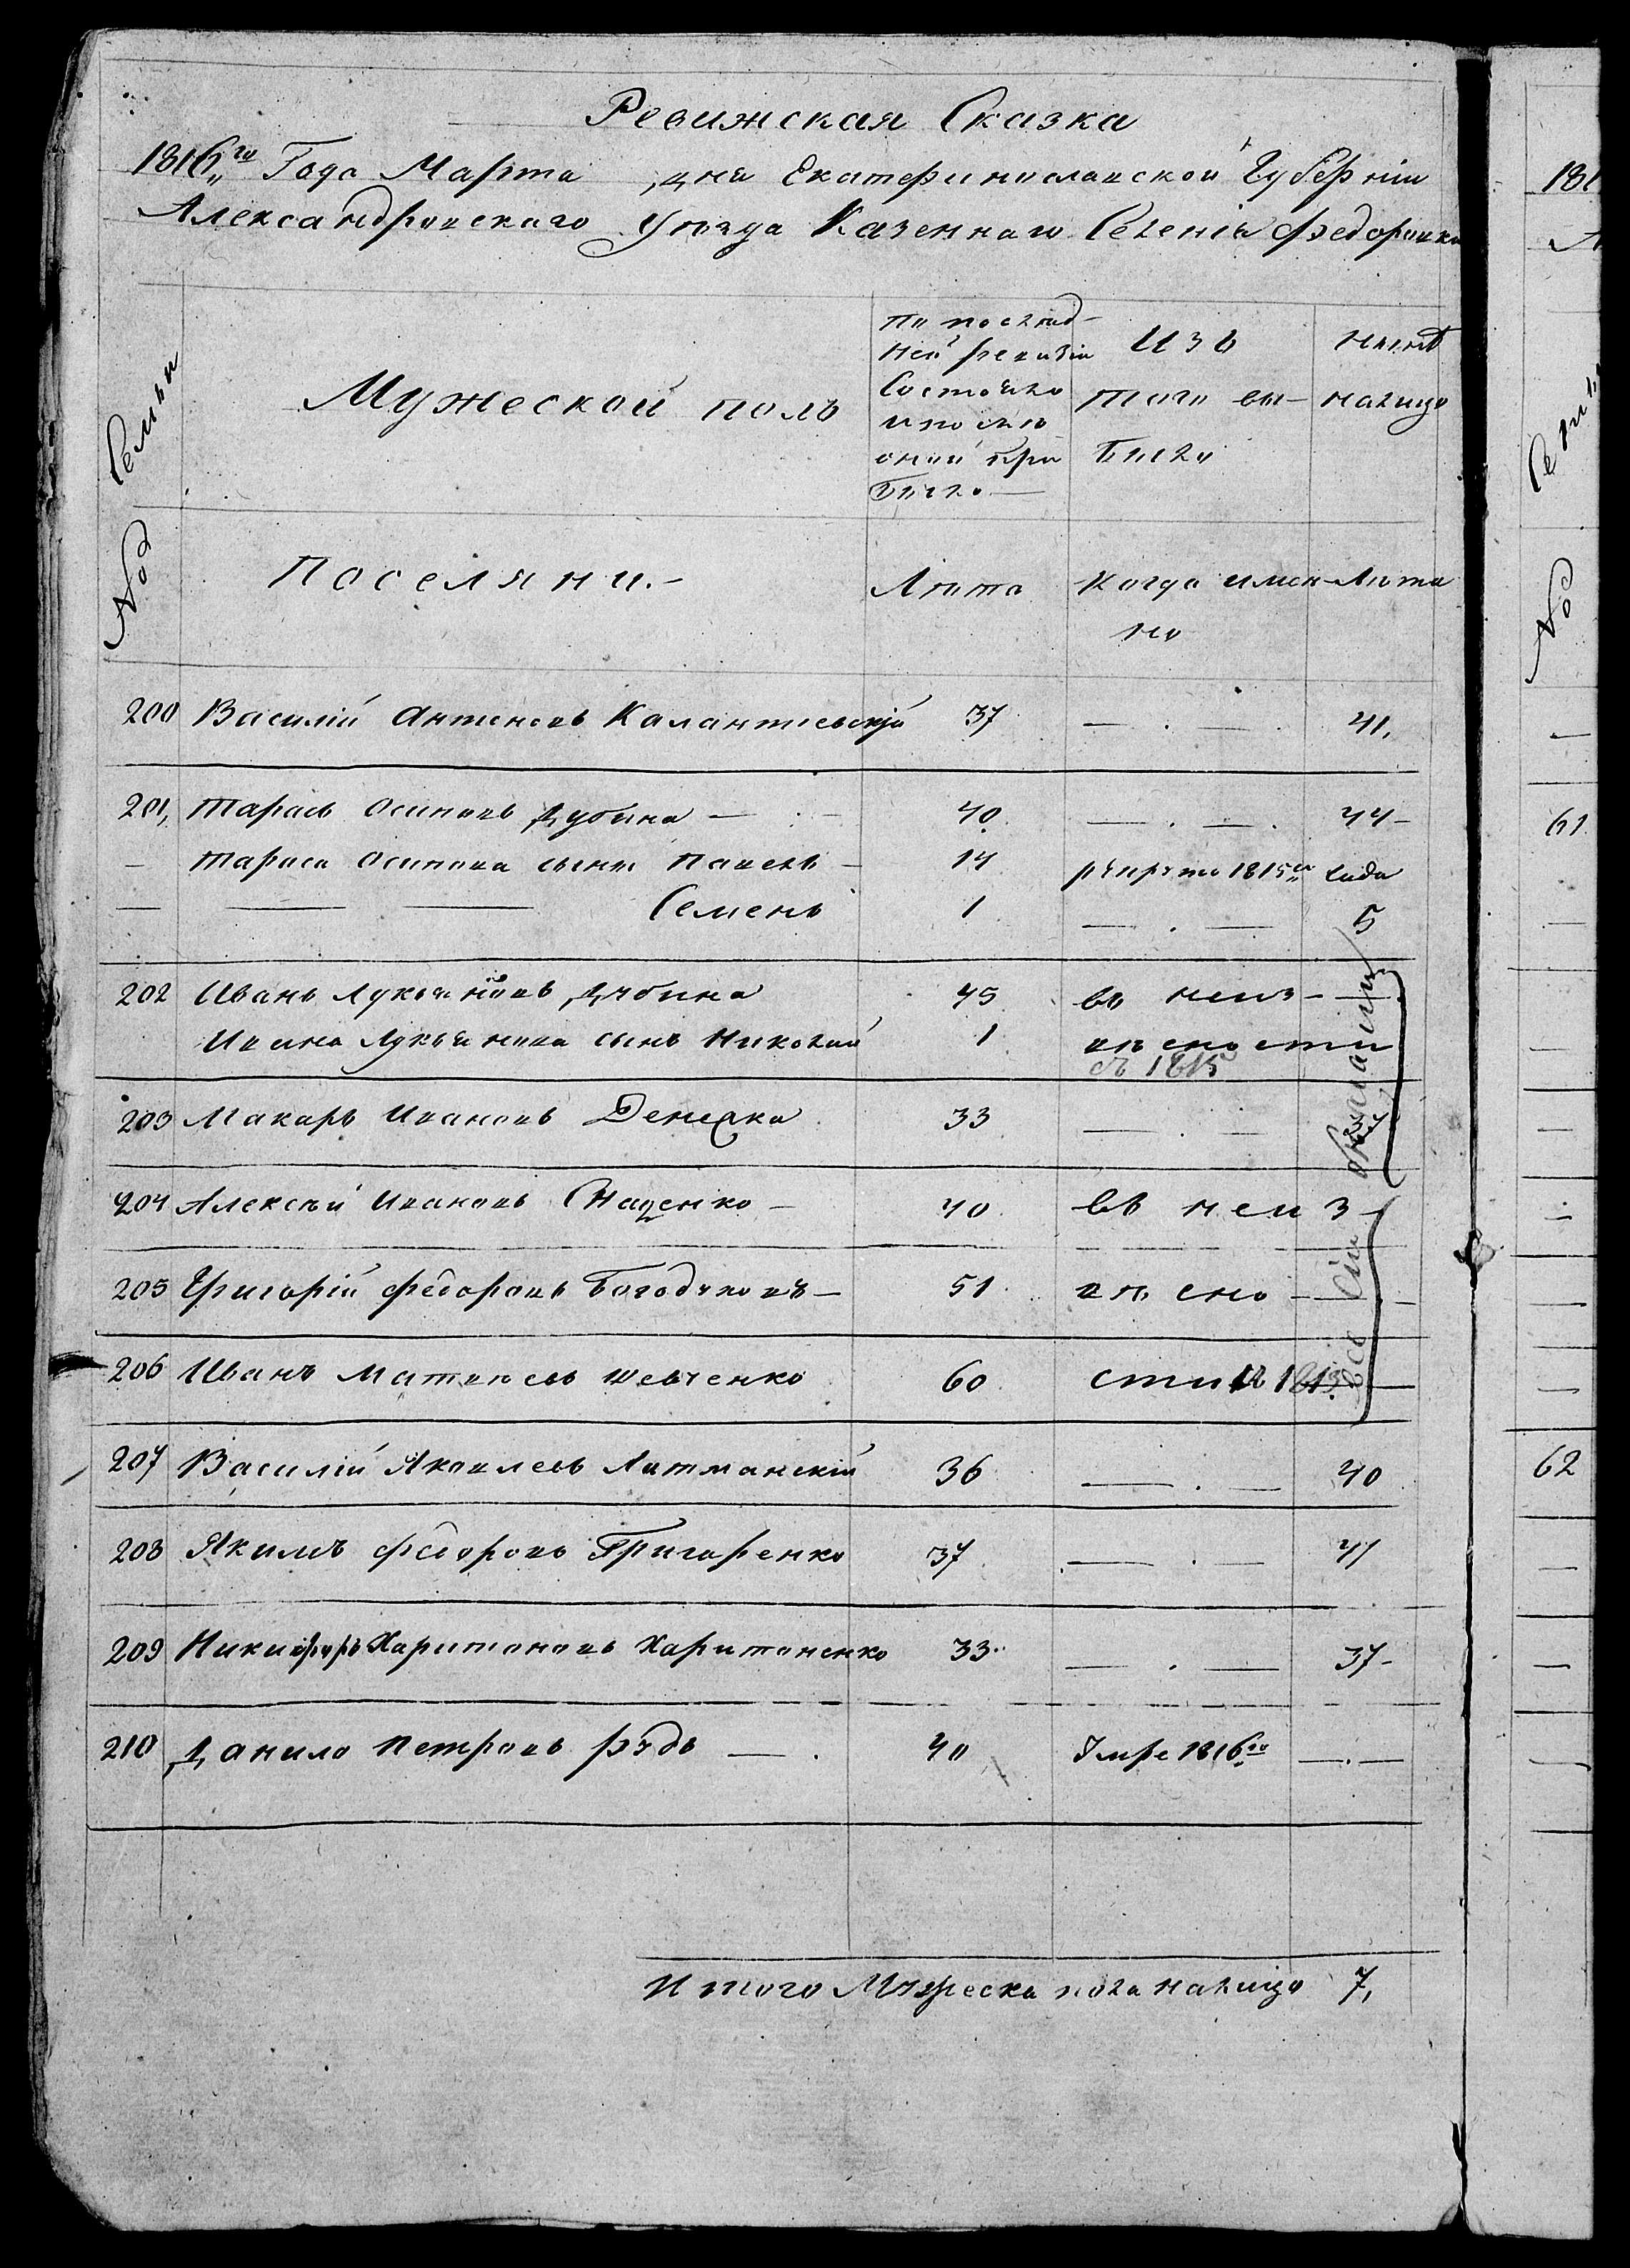 Ревижская Сказка
1816го Года Марта дня Екатеринославской Губерніи
Александровскаго Уѣзда Казеннаго Селенія Федоровки
Семьи
№
Мужеской полъ
По послѣд-
ней ревизіи
Состояло
и послѣ
оной при
было
Изъ
того вы-
было
нынѣ
налицо
Поселяни.
Лѣта
Когда имен-
но
Лѣта
200 Василій Антоновъ Калантаевскій 37 — . — . 41.
201, Тарасъ Осиповъ Дубина — . — 40. — . — . 44 —
— Тараса Осипова сыны Павелъ — 14 рекрутъ 1815го года
— — — Семенъ 1 — . — 5
202 Иванъ Лукьяновъ Дубина 45 въ неиз- —
Ивана Лукьянова сынъ Николай 1 вѣсности
съ 1815
203 Макаръ Ивановъ 33 — . —
204 Алексѣй Ивановъ 40 въ неиз-
205 Григорій Федоровъ Богодуховъ — 51 вѣсно — . —
206 Иванъ Матвѣевъ Шевченко 60 сти 1815. —
207 Василій Яковлевъ 36 — . — 40
208 Якимъ Федоровъ Григоренко 37 . — . — 41
209 Никифоръ Харитоновъ Харитоненко 33. — . — 37 —
210 Данило Петровъ Рудь — . 40 Умре 1816го — . —
Итого Мужеска пола налицо 7,
181
№
61
62